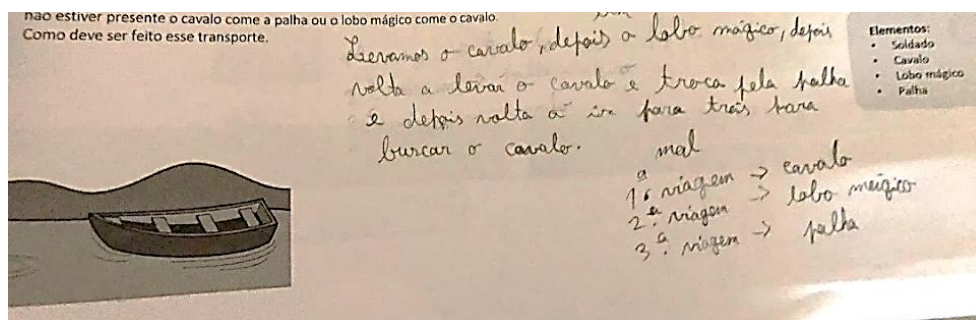 não estiver presente o cavalo come a palha ou o lobo mágico come o cavalo.
Como deve ser feito esse transporte.
Levamos o cavalo, depois o lobo mágico, depois
volta a levar o cavalo e troca pela palha
e depois volta a ir para trás para
buscar o cavalo.
mal
1.ª viagem → cavalo
2.ª viagem → lobo mágico
3.ª viagem → palha
Elementos:
• Soldado
• Cavalo
• Lobo mágico
• Palha